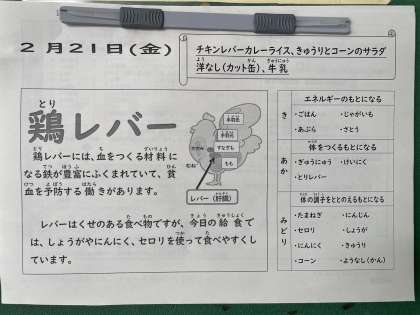 2月21日(金)
チキンレバーカレーライス、きゅうりとコーンのサラダ
洋なし(カット缶)、牛乳
鶏レバー
鶏レバーには、血をつくる材料に
なる鉄が豊富にふくまれていて、貧
血を予防する働きがあります。
レバーはくせのある食べ物ですが、今日の給食で
は、しょうがやにんにく、セロリを使って食べやすくし
ています。
すなぎも
むね
もも
レバー(肝臓)
き
エネルギーのもとになる
・ごはん ・じゃがいも
・あぶら ・さとう
あか
体をつくるもとになる
・ぎゅうにゅう ・けいにく
・とりレバー
みどり
体の調子をととのえるもとになる
・たまねぎ ・にんじん
・セロリ ・しょうが
・にんにく ・きゅうり
・コーン ・ようなし(かん)